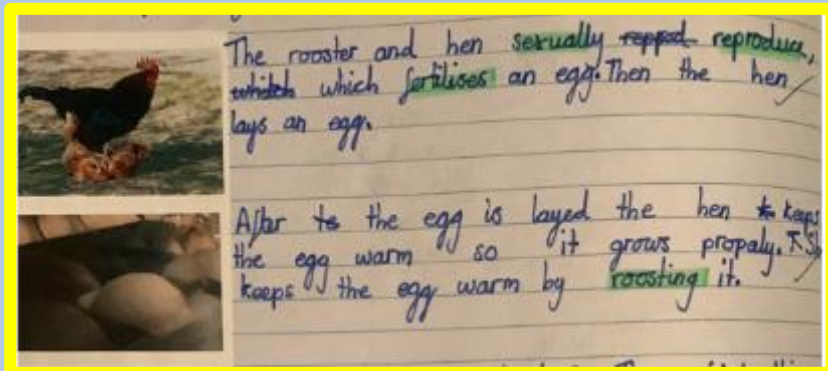 The rooster and hen sexually repped reproduce,
which which fertilises an egg. Then the hen
lays an egg.
After to the egg is layed the hen to keeps
the egg warm so it grows propaly. She
keeps the egg warm by roosting it.